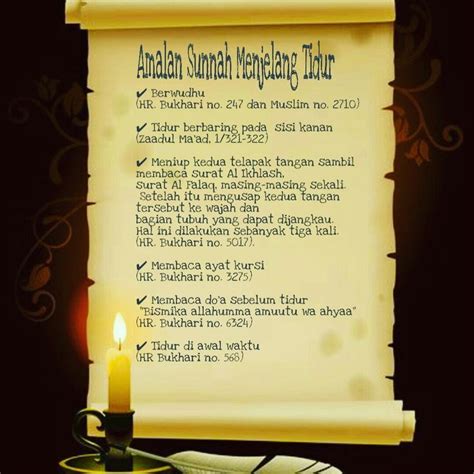 Amalan Sunnah Menjelang Tidur
✔ Berwudhu
(HR. Bukhari no. 247 dan Muslim no. 2710)
✔ Tidur berbaring pada sisi kanan
(Zaadul Ma'ad, 1/321-322)
✔ Meniup kedua telapak tangan sambil
membaca surat Al Ikhlash,
surat Al Falaq, masing-masing sekali.
Setelah itu mengusap kedua tangan
tersebut ke wajah dan
bagian tubuh yang dapat dijangkau.
Hal ini dilakukan sebanyak tiga kali.
(HR. Bukhari no. 5017).
✔ Membaca ayat kursi
(HR. Bukhari no. 3275)
✔ Membaca do'a sebelum tidur
"Bismika allahumma amuutu wa ahyaa"
(HR. Bukhari no. 6324)
✔ Tidur di awal waktu
(HR Bukhari no. 568)